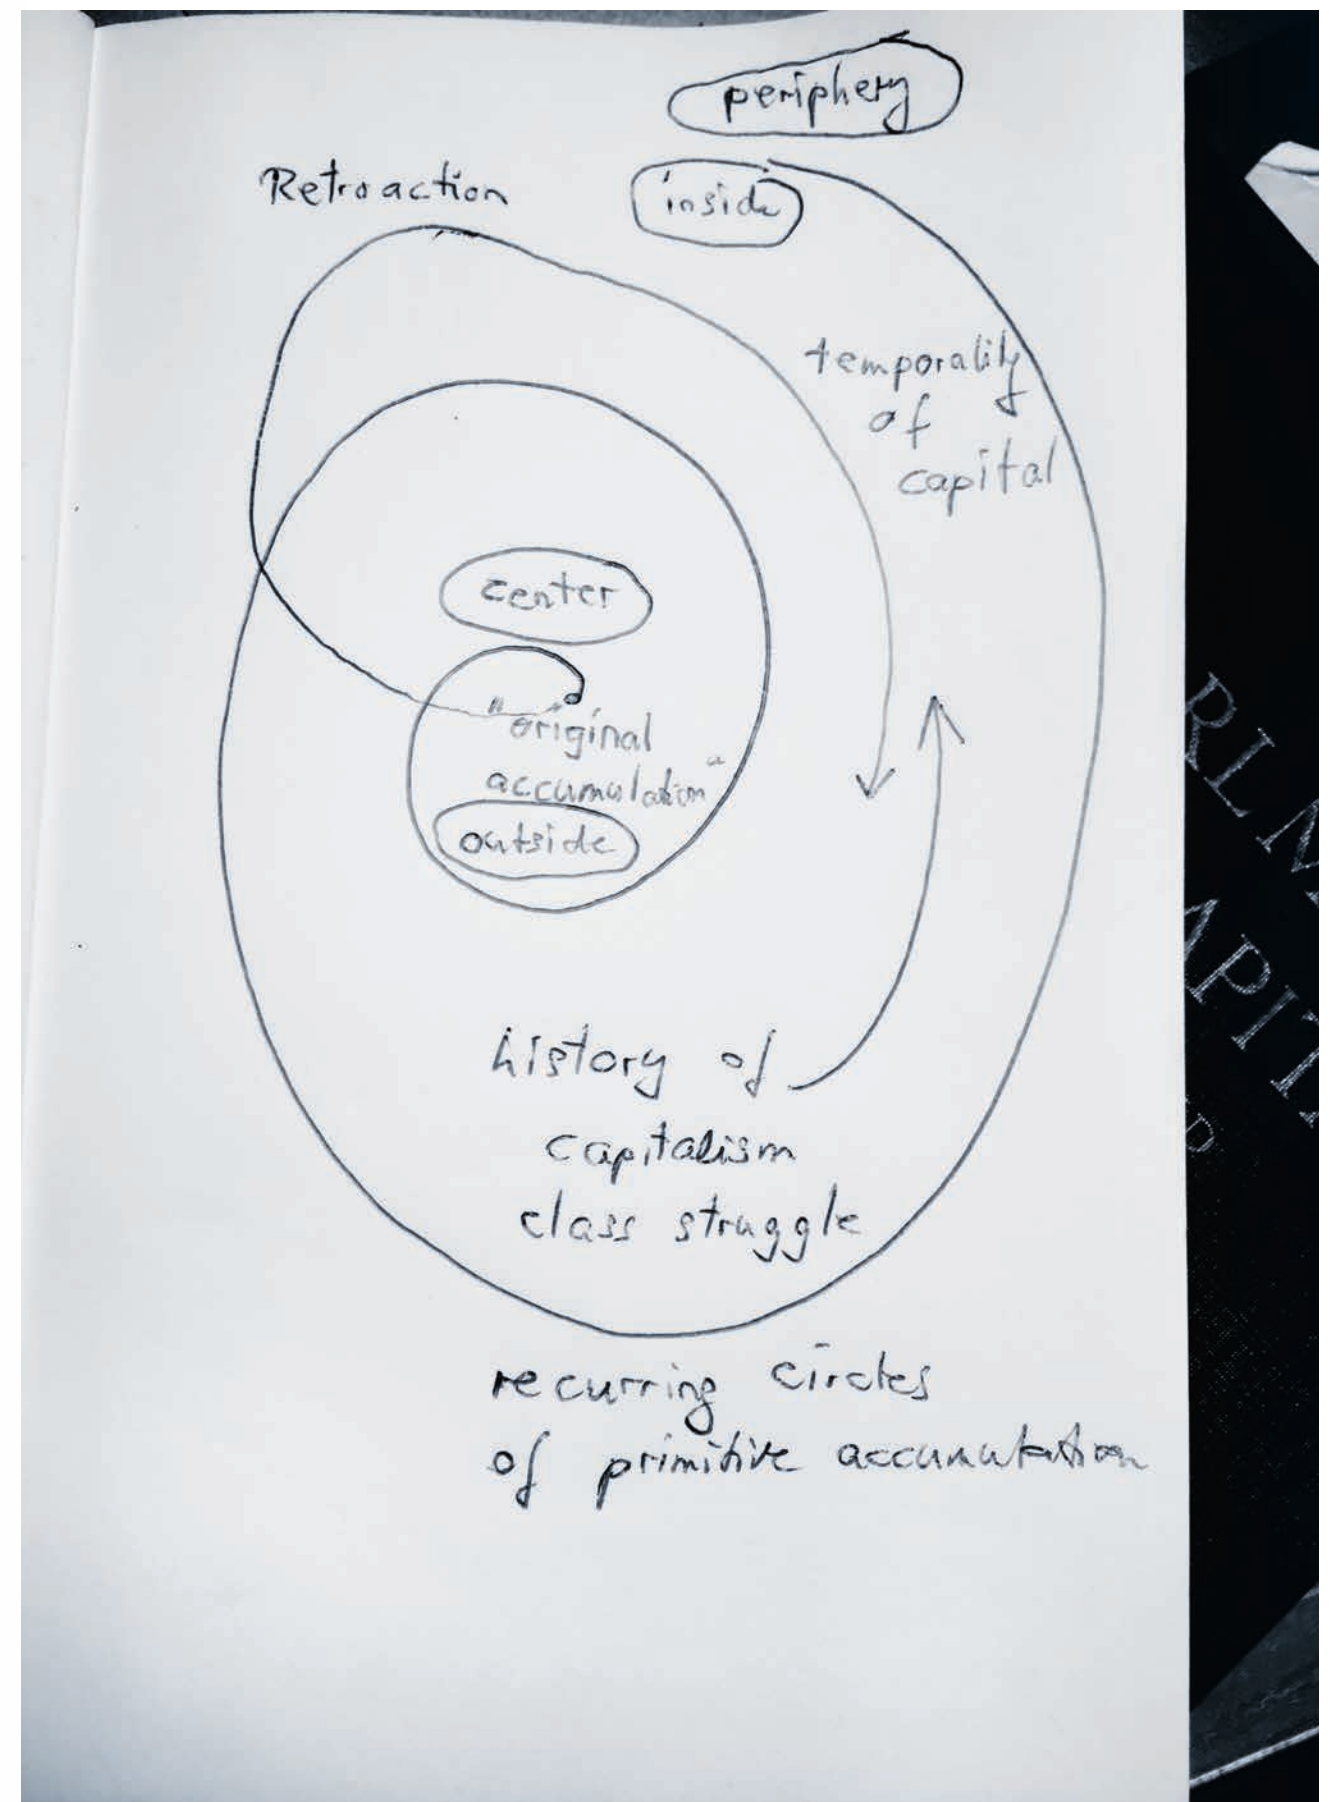 periphery
Retroaction
inside
temporality
of
capital
center
"original
accumulation"
outside
history of
capitalism
class struggle
recurring circles
of primitive accumulation
RL M
APIT